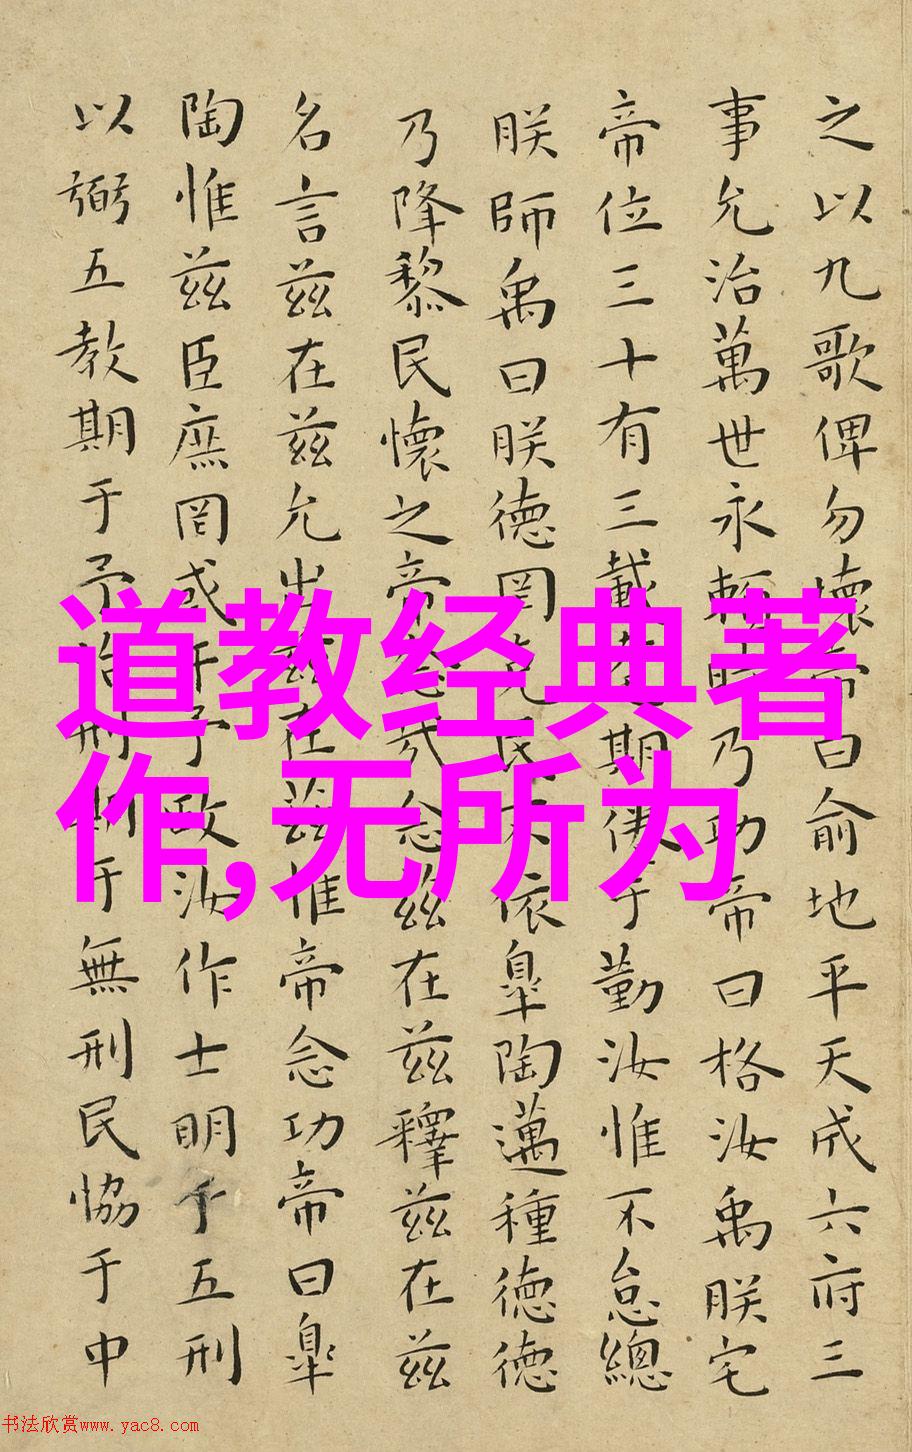 之以九歌俾勿壞帝曰俞地平天成六府三
事允治萬世永賴時乃功帝曰格汝禹朕宅
帝位三十有三載期倦于勤汝惟不怠總
朕師禹曰朕德罔克民不依臯陶邁種德德
乃降黎民懷之帝念哉念茲在茲釋茲在茲
名言茲在茲允出茲在茲惟帝念功帝曰臯
陶惟茲臣庶罔或干予政汝作士明于五刑
以弼五教期于予治刑期于無刑民協于中
道教经典著
作,无所为
书法欣赏www.yac8.com